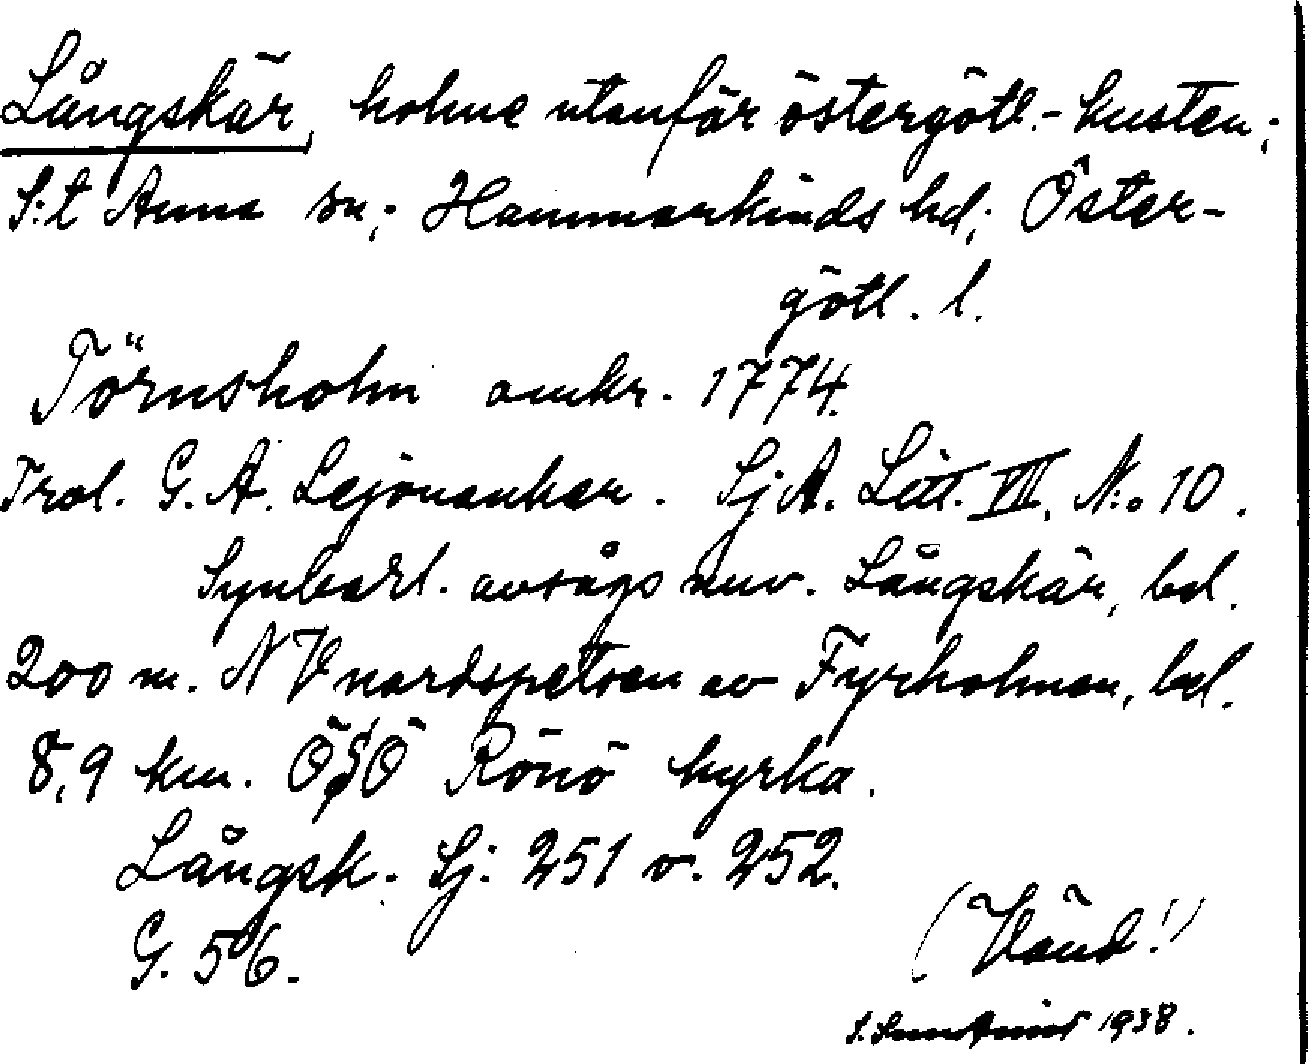 Långskär, holme utanför östergötl.-kusten;
S:t Anna sn; Hammarkinds hd; Öster-
götl. l.
Törnsholm omkr. 1774.
Trol. G. A. Lejonankar. SjA. Litt. VII. N:o 10.
Synbarl. avsågs nuv. Långskär, bel.
200 m. NV nordspetsen av Fyrholmen, bel.
8,9 km. ÖSÖ Rönö kyrka.
Långsk. Sj. 251 v. 252.
G. 56.
(Vänd!)
1938.